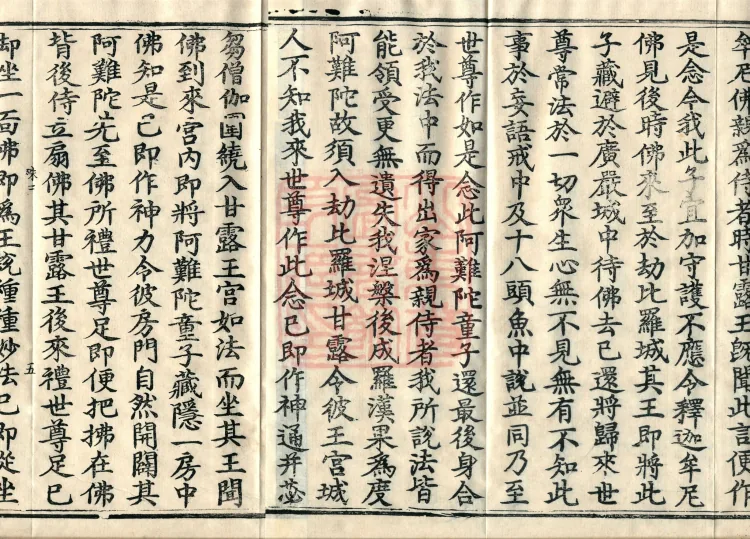 牟尼佛親爲侍者時甘露王既聞此言便作
是念今我此子宜加守護不應令釋迦牟尼
佛見後時佛來至於劫比羅城其王即將此
子藏避於廣嚴城中待佛去已還將歸來世
尊常法於一切衆生心無不見無有不知此
事於妄語戒中及十八頭魚中說並同乃至
世尊作如是念此阿難陀童子還最後身合
於我法中而得出家爲親侍者我所說法皆
能領受更無遺失我涅槃後成羅漢果爲度
阿難陀故須入劫比羅城甘露令彼王宮城
人不知我來世尊作此念已即作神通并苾
芻僧伽圍繞入甘露王宮如法而坐其王聞
佛到來宮內即將阿難陀童子藏隱一房中
佛知是已即作神力令彼房門自然開闢其
阿難陀先至佛所禮世尊足即便把拂在佛
背後侍立扇佛其甘露王後來禮世尊足已
却坐一面佛即爲王說種種妙法已即從坐
五